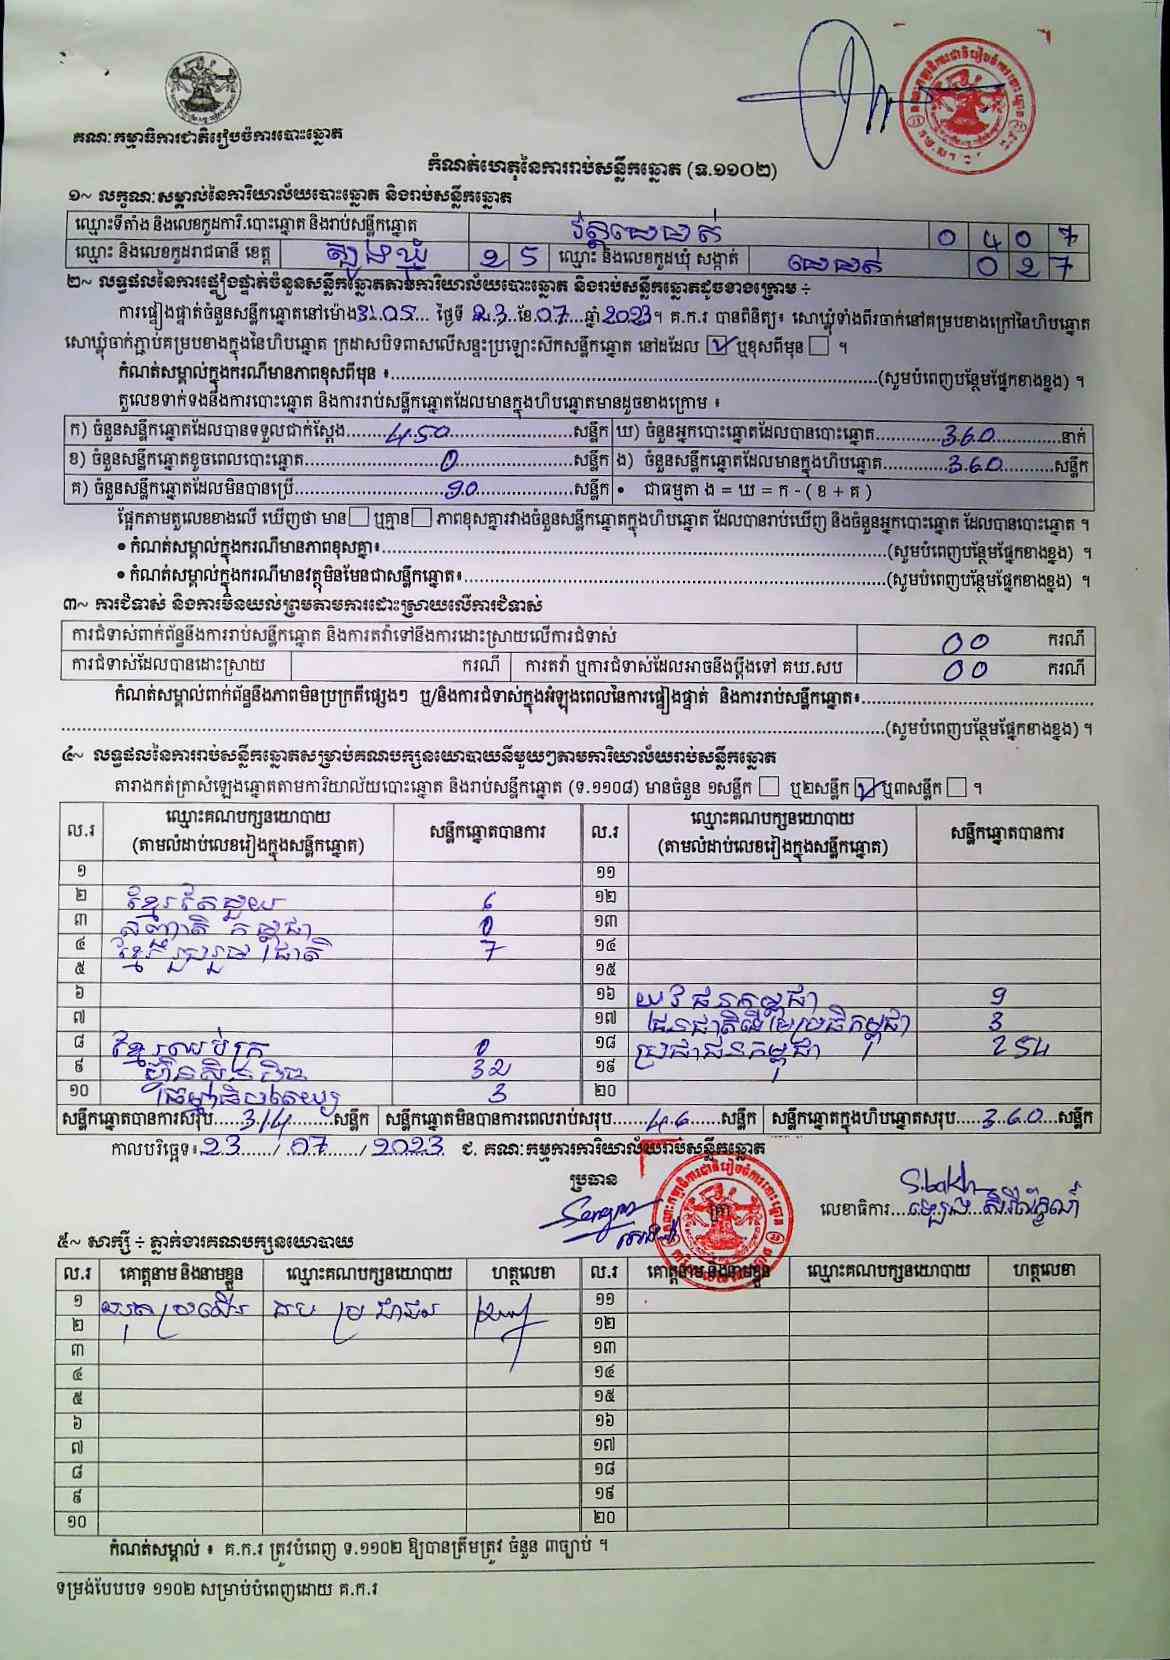 គណៈកម្មាធិការជាតិរៀបចំការបោះឆ្នោត
កំណត់ហេតុនៃការរាប់សន្លឹកឆ្នោត (ទ.១១០២)
១~ លក្ខណៈសម្គាល់នៃការិយាល័យបោះឆ្នោត និងរាប់សន្លឹកឆ្នោត
ឈ្មោះទីតាំង និងលេខកូដការិ.បោះឆ្នោត និងរាប់សន្លឹកឆ្នោត 0 4 0 7
ឈ្មោះ និងលេខកូដរាជធានី ខេត្ត ត្បូងឃ្មុំ 2 5 ឈ្មោះ និងលេខកូដឃុំ សង្កាត់ 0 2 7
២~ លទ្ធផលនៃការផ្ទៀងផ្ទាត់ចំនួនសន្លឹកឆ្នោតតាមការិយាល័យបោះឆ្នោត និងរាប់សន្លឹកឆ្នោតដូចខាងក្រោម ÷
ការផ្ទៀងផ្ទាត់ចំនួនសន្លឹកឆ្នោតនៅម៉ោង 3:05 ថ្ងៃទី 23 ខែ 07 ឆ្នាំ 2023។ គ.ក.រ បានពិនិត្យ៖ សោឃ្លុំទាំងពីរចាក់នៅគម្របខាងក្រៅនៃហិបឆ្នោត
សោឃ្លុំចាក់ភ្ជាប់គម្របខាងក្នុងនៃហិបឆ្នោត ក្រដាសបិទពាសលើសន្ទះប្រឡោះស៊ីកសន្លឹកឆ្នោត នៅដដែល ☑ ឬខុសពីមុន ☐ ។
កំណត់សម្គាល់ក្នុងករណីមានភាពខុសពីមុន ៖ (សូមបំពេញបន្ថែមផ្នែកខាងខ្នង) ។
តួលេខទាក់ទងនឹងការបោះឆ្នោត និងការរាប់សន្លឹកឆ្នោតដែលមានក្នុងហិបឆ្នោតមានដូចខាងក្រោម ៖
ក) ចំនួនសន្លឹកឆ្នោតដែលបានទទួលជាក់ស្ដែង 450 សន្លឹក ឃ) ចំនួនអ្នកបោះឆ្នោតដែលបានបោះឆ្នោត 360 នាក់
ខ) ចំនួនសន្លឹកឆ្នោតខូចពេលបោះឆ្នោត 0 សន្លឹក ង) ចំនួនសន្លឹកឆ្នោតដែលមានក្នុងហិបឆ្នោត 360 សន្លឹក
គ) ចំនួនសន្លឹកឆ្នោតដែលមិនបានប្រើ 90 សន្លឹក • ជាធម្មតា ង = ឃ = ក - ( ខ + គ )
ផ្អែកតាមតួលេខខាងលើ ឃើញថា មាន ☐ ឬគ្មាន ☐ ភាពខុសគ្នារវាងចំនួនសន្លឹកឆ្នោតក្នុងហិបឆ្នោត ដែលបានរាប់ឃើញ និងចំនួនអ្នកបោះឆ្នោត ដែលបានបោះឆ្នោត ។
• កំណត់សម្គាល់ក្នុងករណីមានភាពខុសគ្នា៖ (សូមបំពេញបន្ថែមផ្នែកខាងខ្នង) ។
• កំណត់សម្គាល់ក្នុងករណីមានវត្ថុមិនមែនជាសន្លឹកឆ្នោត៖ (សូមបំពេញបន្ថែមផ្នែកខាងខ្នង) ។
៣~ ការជំទាស់ និងការមិនយល់ព្រមតាមការដោះស្រាយលើការជំទាស់
ការជំទាស់ពាក់ព័ន្ធនឹងការរាប់សន្លឹកឆ្នោត និងការតវ៉ាទៅនឹងការដោះស្រាយលើការជំទាស់ 00 ករណី
ការជំទាស់ដែលបានដោះស្រាយ ករណី ការតវ៉ា ឬការជំទាស់ដែលអាចនឹងប្ដឹងទៅ គឃ.សប 00 ករណី
កំណត់សម្គាល់ពាក់ព័ន្ធនឹងភាពមិនប្រក្រតីផ្សេងៗ ឬ/និងការជំទាស់ក្នុងអំឡុងពេលនៃការផ្ទៀងផ្ទាត់ និងការរាប់សន្លឹកឆ្នោត៖
(សូមបំពេញបន្ថែមផ្នែកខាងខ្នង) ។
៤~ លទ្ធផលនៃការរាប់សន្លឹកឆ្នោតសម្រាប់គណបក្សនយោបាយនីមួយៗតាមការិយាល័យរាប់សន្លឹកឆ្នោត
តារាងកត់ត្រាសំឡេងឆ្នោតតាមការិយាល័យបោះឆ្នោត និងរាប់សន្លឹកឆ្នោត (ទ.១១០៨) មានចំនួន ១សន្លឹក ☐ ឬ២សន្លឹក ☑ ឬ៣សន្លឹក ☐ ។
ល.រ ឈ្មោះគណបក្សនយោបាយ សន្លឹកឆ្នោតបានការ ល.រ ឈ្មោះគណបក្សនយោបាយ សន្លឹកឆ្នោតបានការ
(តាមលំដាប់លេខរៀងក្នុងសន្លឹកឆ្នោត) (តាមលំដាប់លេខរៀងក្នុងសន្លឹកឆ្នោត)
១ ១១
២ ខ្មែរតែមួយ 6 ១២
៣ សញ្ជាតិកម្ពុជា 0 ១៣
៤ ខ្មែររួបរួមជាតិ 7 ១៤
៥ ១៥
៦ ១៦ យុវជនកម្ពុជា 9
៧ ១៧ ជនជាតិដើមប្រជាធិបតេយ្យកម្ពុជា 3
៨ ខ្មែរឈប់ក្រ 0 ១៨ ប្រជាជនកម្ពុជា 254
៩ ហ្វ៊ុនស៊ិនប៉ិច 32 ១៩
១០ 3 ២០
សន្លឹកឆ្នោតបានការសរុប 314 សន្លឹក សន្លឹកឆ្នោតមិនបានការពេលរាប់សរុប 46 សន្លឹក សន្លឹកឆ្នោតក្នុងហិបឆ្នោតសរុប 360 សន្លឹក
កាលបរិច្ឆេទ៖ 23 / 07 / 2023 ជ. គណៈកម្មការការិយាល័យរាប់សន្លឹកឆ្នោត
ប្រធាន
លេខាធិការ
៥~ សាក្សី ÷ ភ្នាក់ងារគណបក្សនយោបាយ
ល.រ គោត្តនាម និងនាមខ្លួន ឈ្មោះគណបក្សនយោបាយ ហត្ថលេខា ល.រ គោត្តនាម និងនាមខ្លួន ឈ្មោះគណបក្សនយោបាយ ហត្ថលេខា
១ គបប្រជាជន ១១
២ ១២
៣ ១៣
៤ ១៤
៥ ១៥
៦ ១៦
៧ ១៧
៨ ១៨
៩ ១៩
១០ ២០
កំណត់សម្គាល់ ៖ គ.ក.រ ត្រូវបំពេញ ទ.១១០២ ឱ្យបានត្រឹមត្រូវ ចំនួន ៣ច្បាប់ ។
ទម្រង់បែបបទ ១១០២ សម្រាប់បំពេញដោយ គ.ក.រ